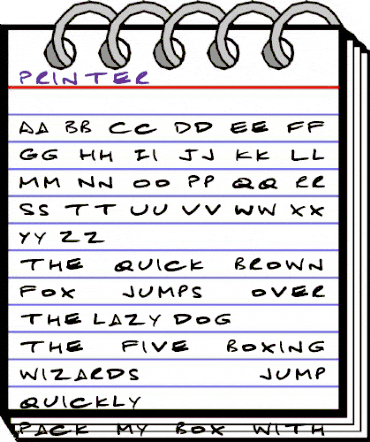 PRINTER
AA BB CC DD EE FF
GG HH II JJ KK LL
MM NN OO PP QQ RR
SS TT UU VV WW XX
YY ZZ
THE QUICK BROWN
FOX JUMPS OVER
THE LAZY DOG
THE FIVE BOXING
WIZARDS JUMP
QUICKLY
PACK MY BOX WITH